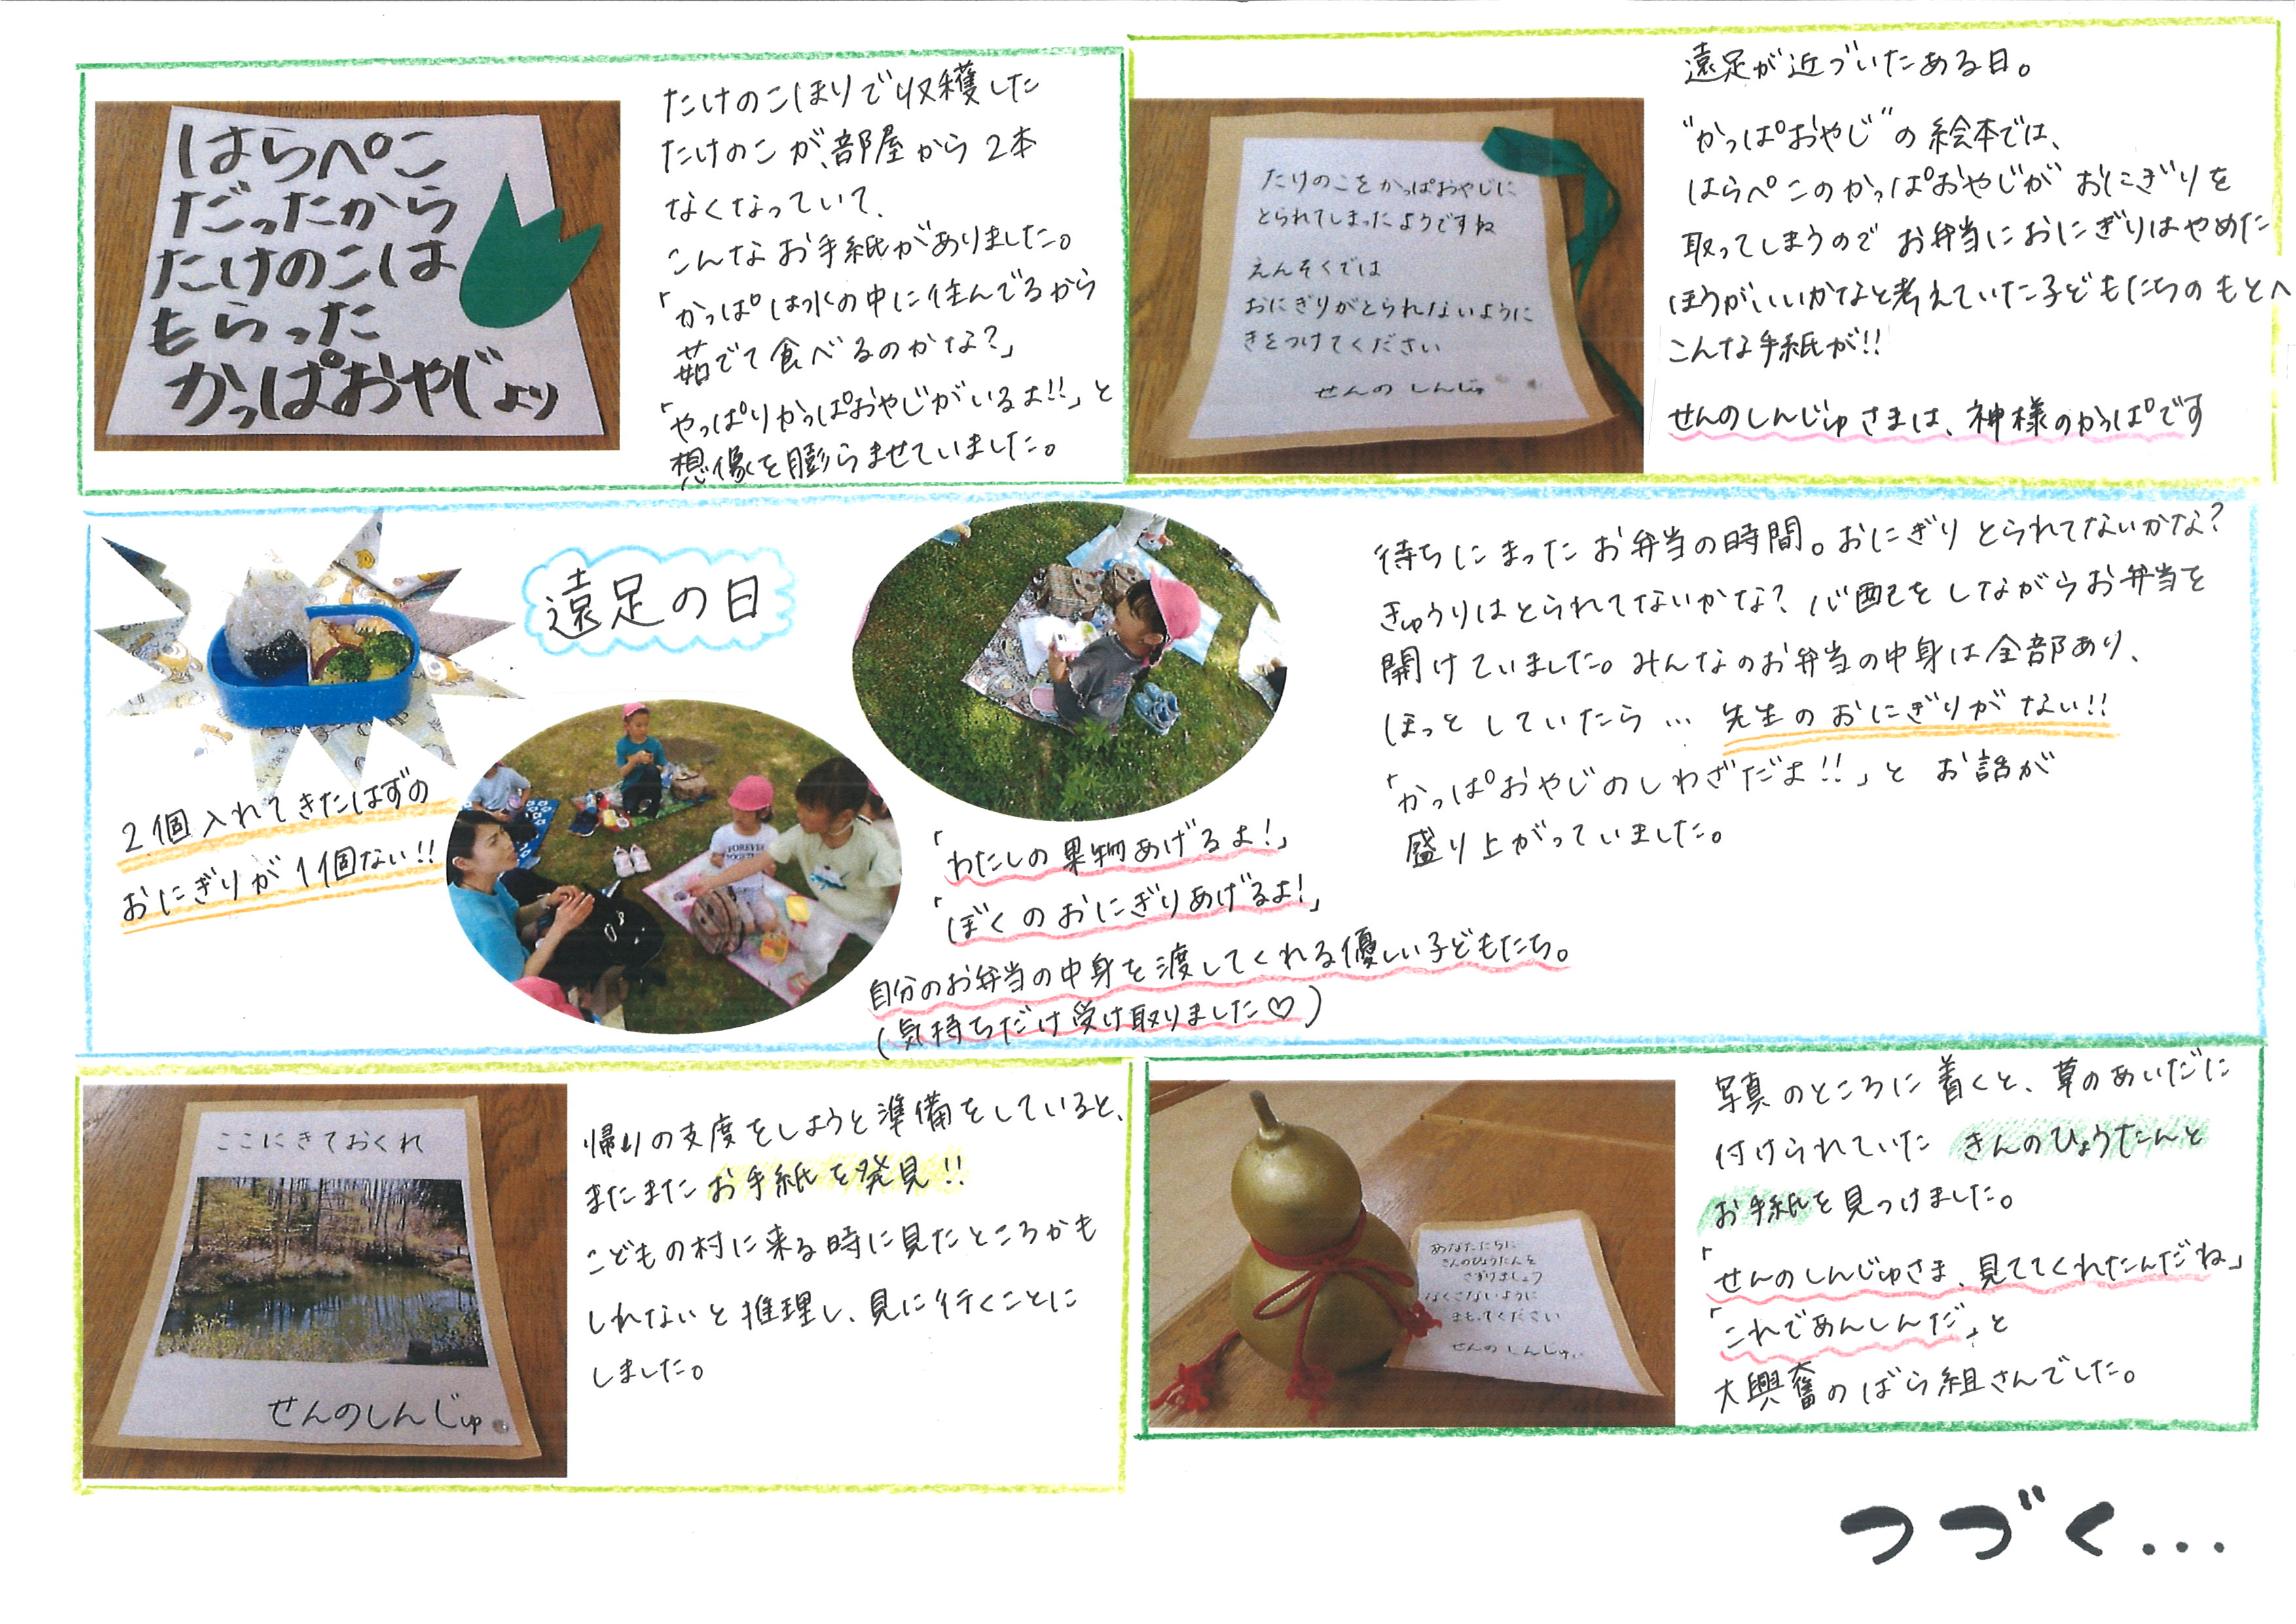 はらぺこ
だったから
たけのこは
もらった
かっぱおやじより
たけのこほりで収穫した
たけのこが、部屋から2本
なくなっていて、
こんなお手紙がありました。
「かっぱは水の中に住んでるから
茹でて食べるのかな?」
「やっぱりかっぱおやじがいるよ!!」と
想像を膨らませていました。
たけのこをかっぱおやじに
とられてしまったようですね
えんそくでは
おにぎりがとられないように
きをつけてください
せんのしんじゅ
遠足が近づいたある日。
"かっぱおやじ"の絵本では、
はらぺこのかっぱおやじがおにぎりを
取ってしまうのでお弁当におにぎりはやめた
ほうがいいかなと考えていた子どもたちのもとへ
こんな手紙が!!
せんのしんじゅさまは、神様のかっぱです
遠足の日
2個入れてきたはずの
おにぎりが1個ない!!
「わたしの果物あげるよ!」
「ぼくのおにぎりあげるよ!」
自分のお弁当の中身を渡してくれる優しい子どもたち。
(気持ちだけ受け取りました♡)
待ちにまったお弁当の時間。おにぎりとられてないかな?
きゅうりはとられてないかな?心配をしながらお弁当を
開けていました。みんなのお弁当の中身は全部あり、
ほっとしていたら…先生のおにぎりがない!!
「かっぱおやじのしわざだよ!!」とお話が
盛り上がっていました。
FOREVER
ここにきておくれ
せんのしんじゅ
帰りの支度をしようと準備をしていると、
またまたお手紙を発見!!
こどもの村に来る時に見たところかも
しれないと推理し、見に行くことに
しました。
あなたたちに
きんのひょうたんを
さずけましょう
なくさないように
まもってください
せんのしんじゅ
写真のところに着くと、草のあいだに
付けられていたきんのひょうたんと
お手紙を見つけました。
「せんのしんじゅさま、見ててくれたんだね」
「これであんしんだ」と
大興奮のばら組さんでした。
つづく…